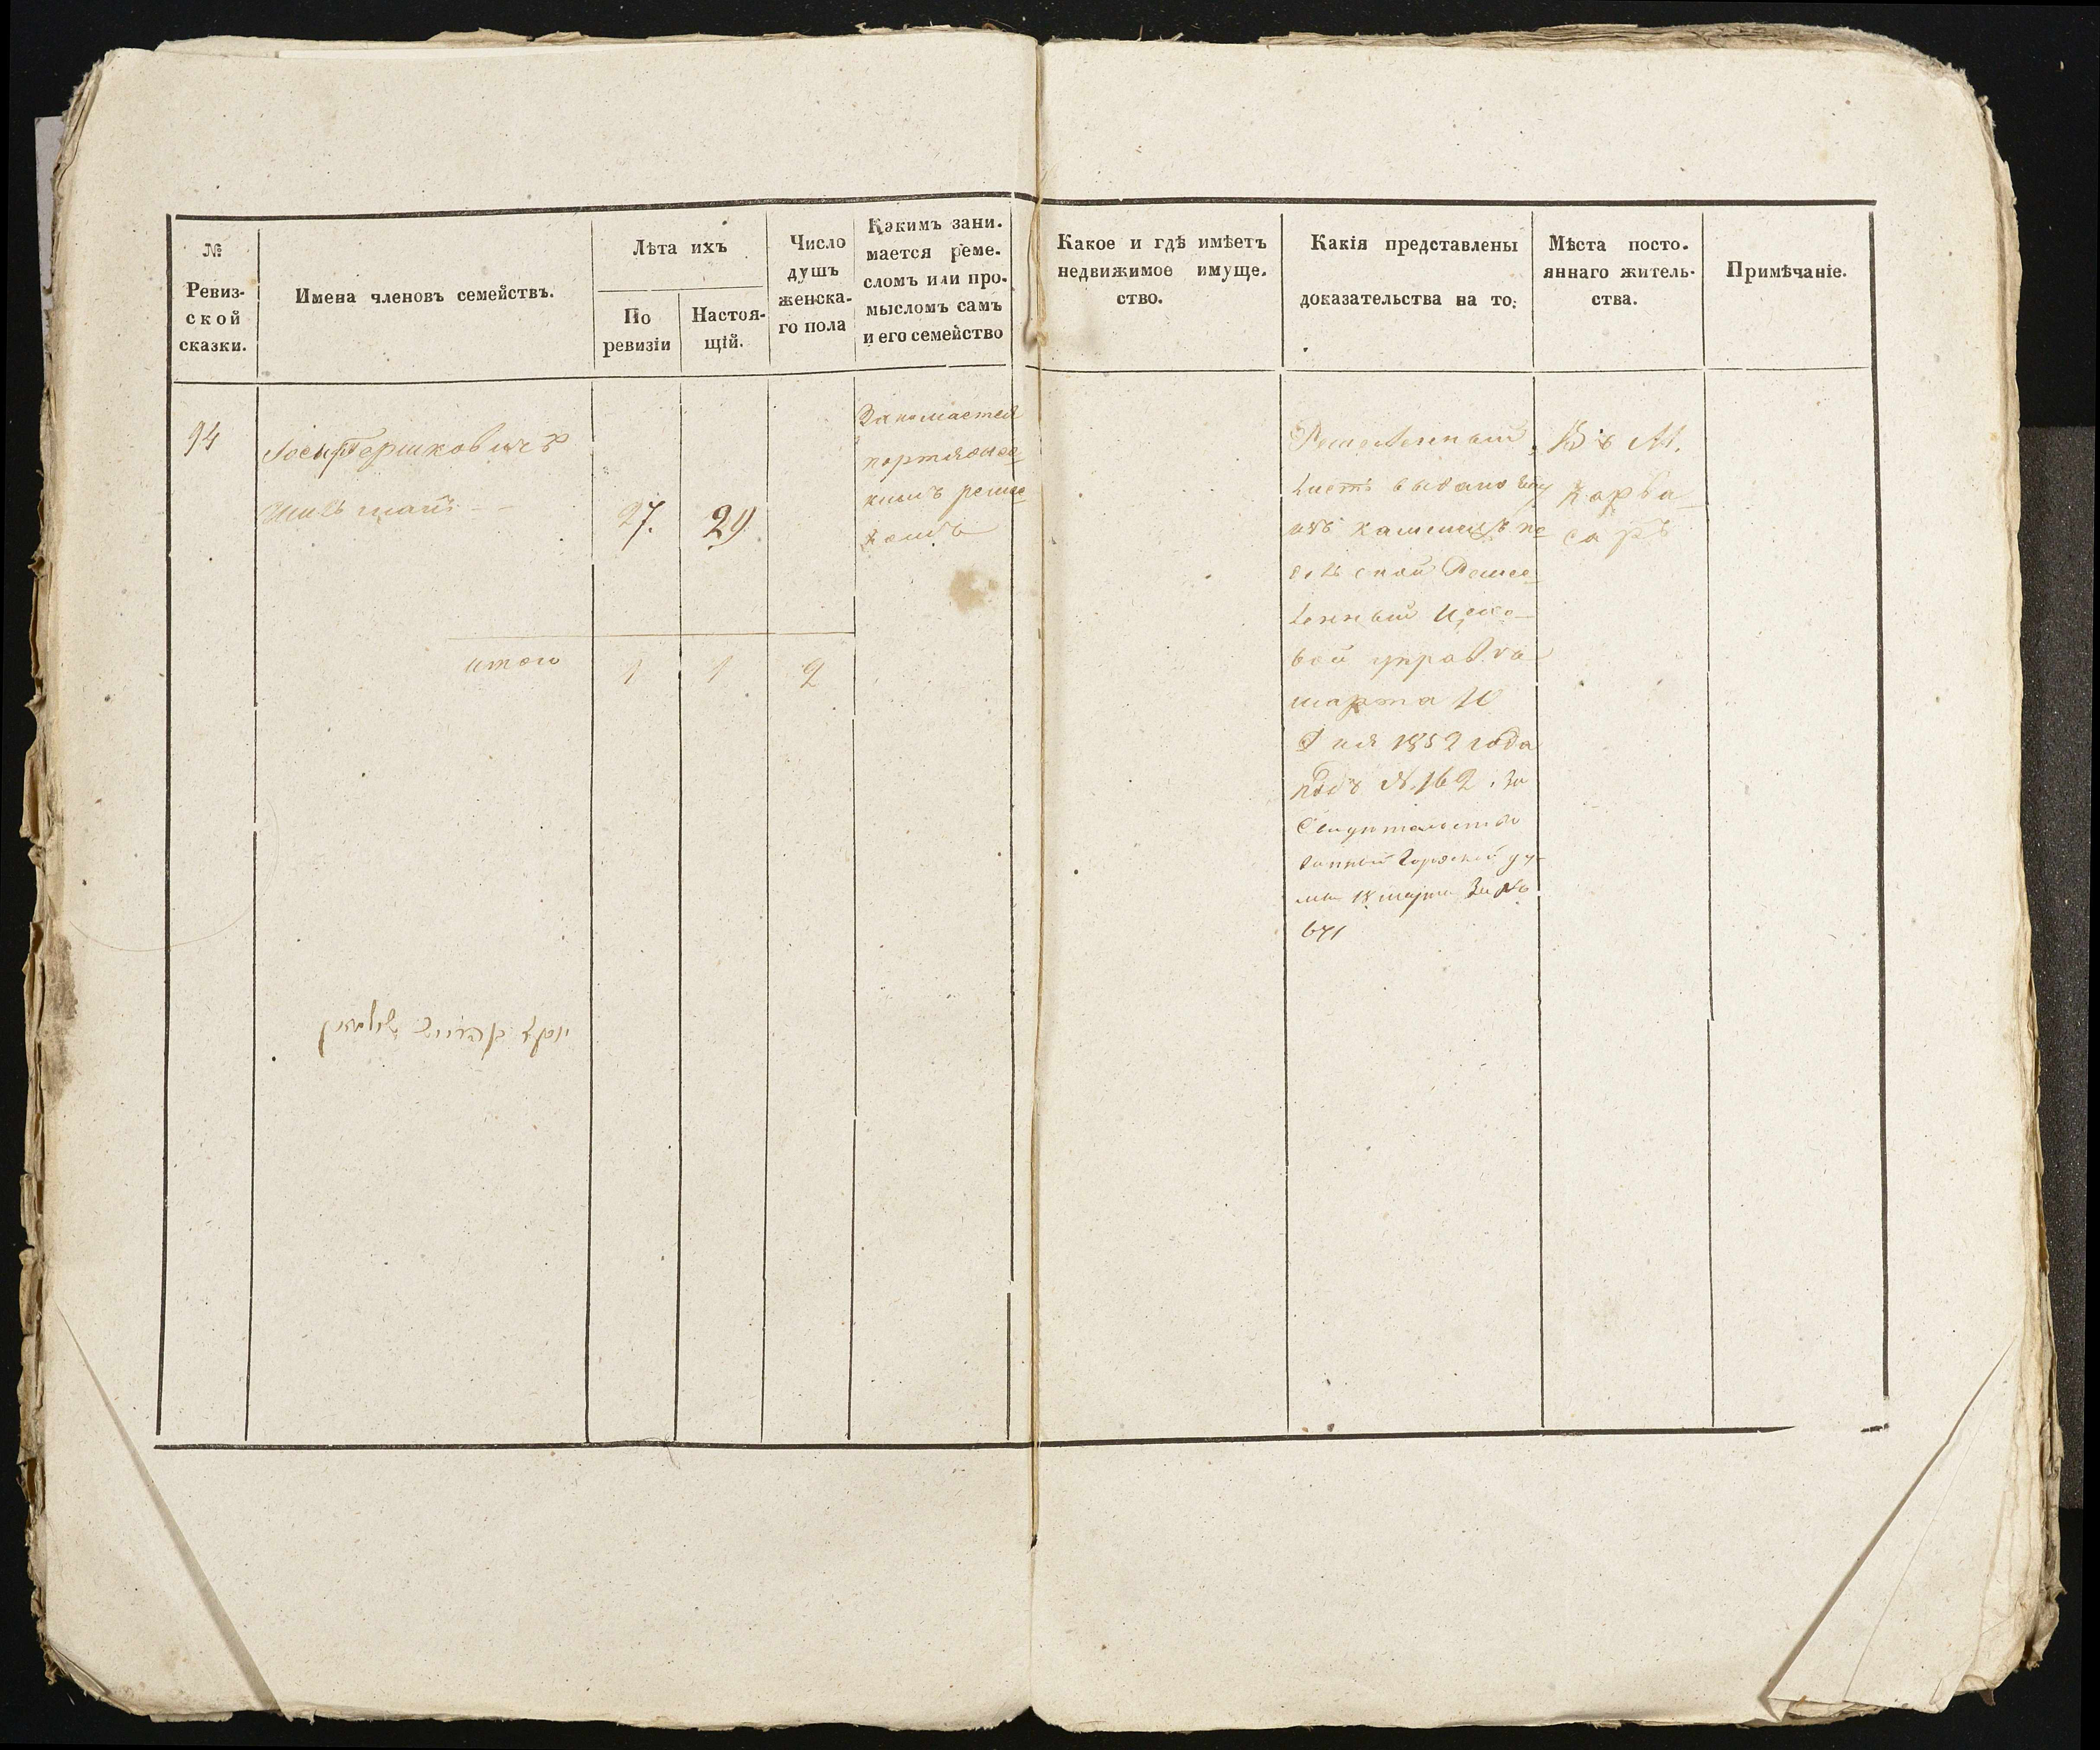 №
Ревиз-
ской
сказки.
Имена членовъ семействъ.
Лѣта ихъ
По
ревизіи
Настоя-
щій.
Число
душъ
женска-
го пола
Какимъ зани-
мается реме-
сломъ или про-
мысломъ самъ
и его семейство
Какое и гдѣ имѣетъ
недвижимое имуще-
ство.
Какія представлены
доказательства на то:
Мѣста посто-
яннаго житель-
ства.
Примѣчаніе.
94
Іосиф Гершковичъ
27. 29
Занимается
портновс-
кимъ реме-
сломъ
итого 1 1 2
Ремесленный
листъ выданъ ему
изъ Каменецъ по-
дольской Ремес-
ленный Цехо-
вой управы
марта 10
Дня 1852 года
подъ № 162.
Свидѣтельство
данный Городской ду-
мы 18 марта За №
671
Въ М.
Карва-
саръ